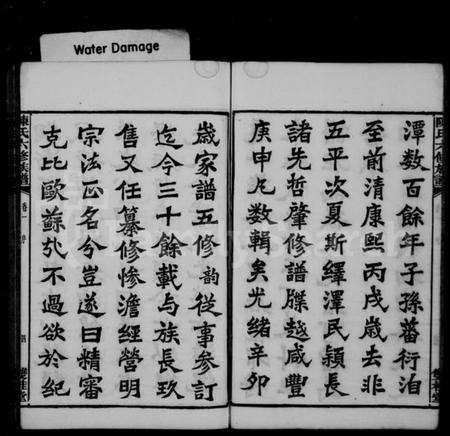 Water Damage
潭數百餘年子孫蕃衍洎
至前清康熙丙戌歲去非
五平次夏斯繹澤民穎長
諸先哲肇修譜牒越咸豐
庚申凡數輯矣光緒辛卯
歲家譜五修韵從事參訂
迄今三十餘載与族長玖
售又任纂修慘澹經營明
宗法正名分豈遂曰精審
克比歐蘇弟不過欲於紀
陳氏六修族譜
卷一
雙桂堂
陳氏六修族譜
雙桂堂